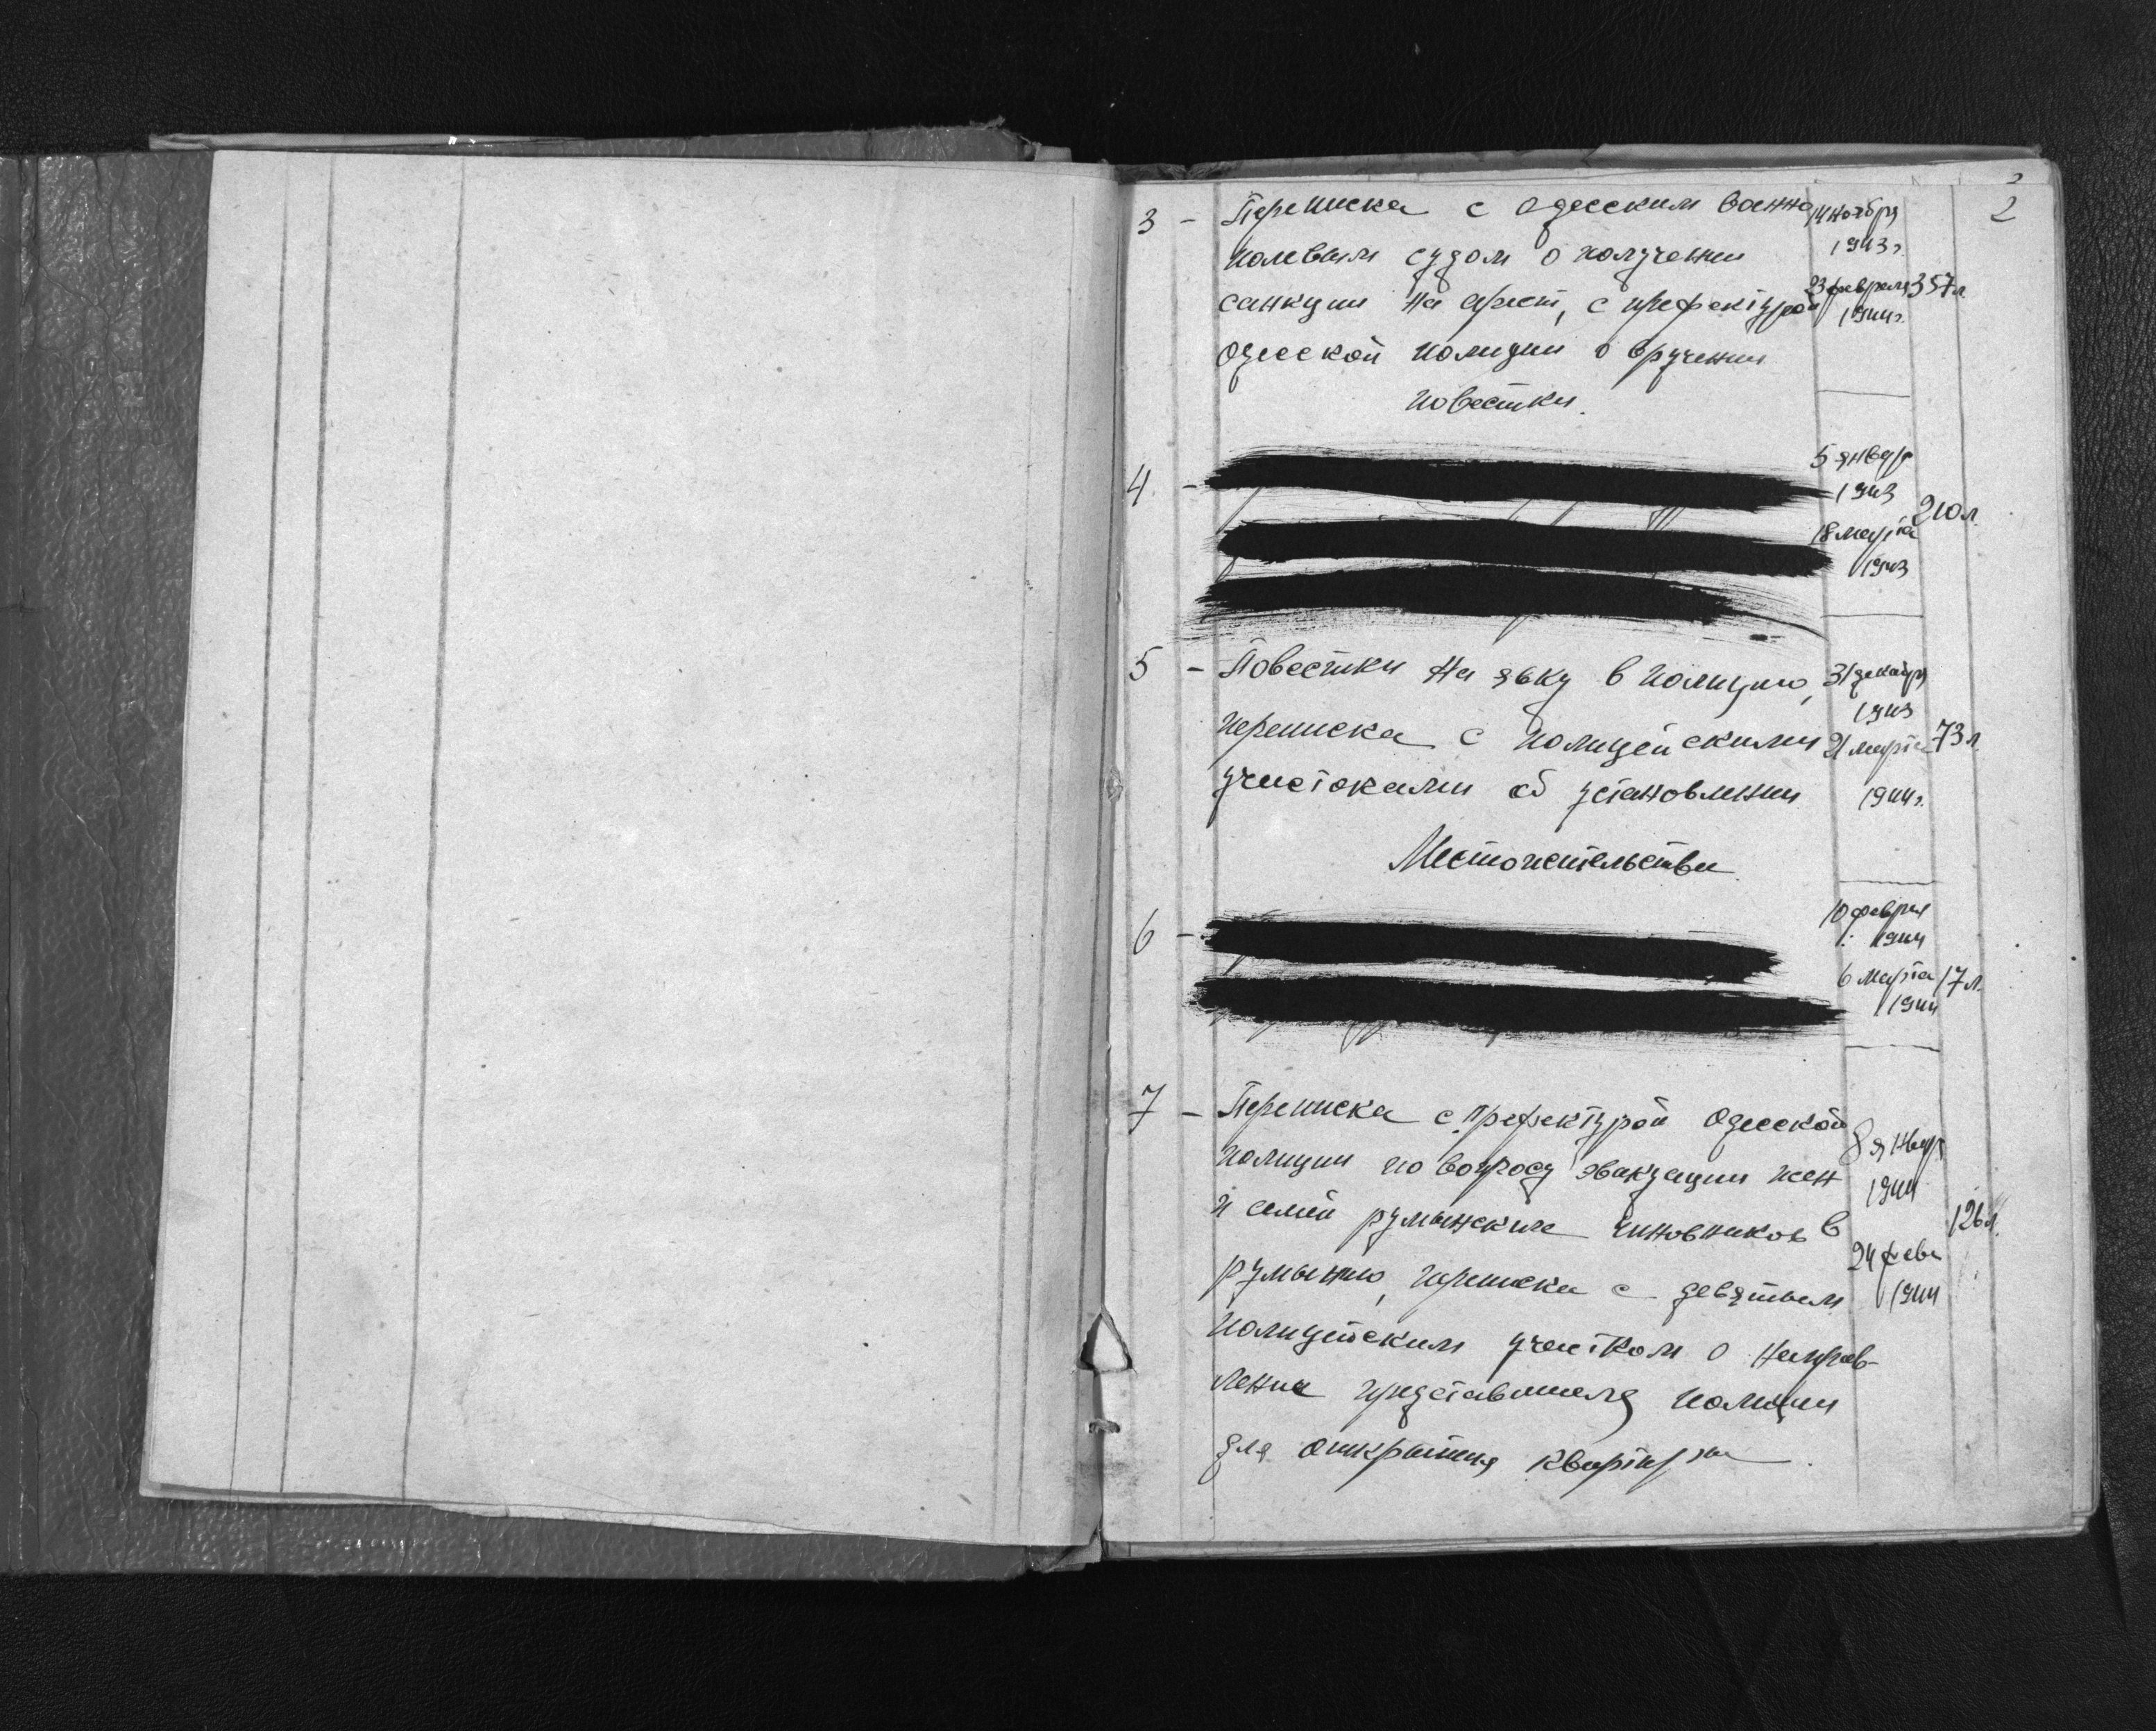 2
3 - Переписка с одесским военно 14 ноября
1943г.
полевым судом о получении
санкции на арест, с префектурой 23 февраля 357л.
1944г.
одесской полиции о вручении
повестки.
4. - 5 январ
1943
210л.
18 марта
1943
5 - Повестки на явку в полицию, 31 декабря
1943
переписка с полицейскими 21 марта 73л.
участками об установлении 1944г.
Местожительства
6 - 10 февраля
1944
6 марта 17л.
1944
7 - Переписка с префектурой Одесской
8 январ
полиции по вопросу эвакуации жен 1944
и семей румынских чиновников в 126л.
24 фев
румынию, переписка с девятым 1944
полицейским участком о направ-
лении представителя полиции
для открытия квартиры.